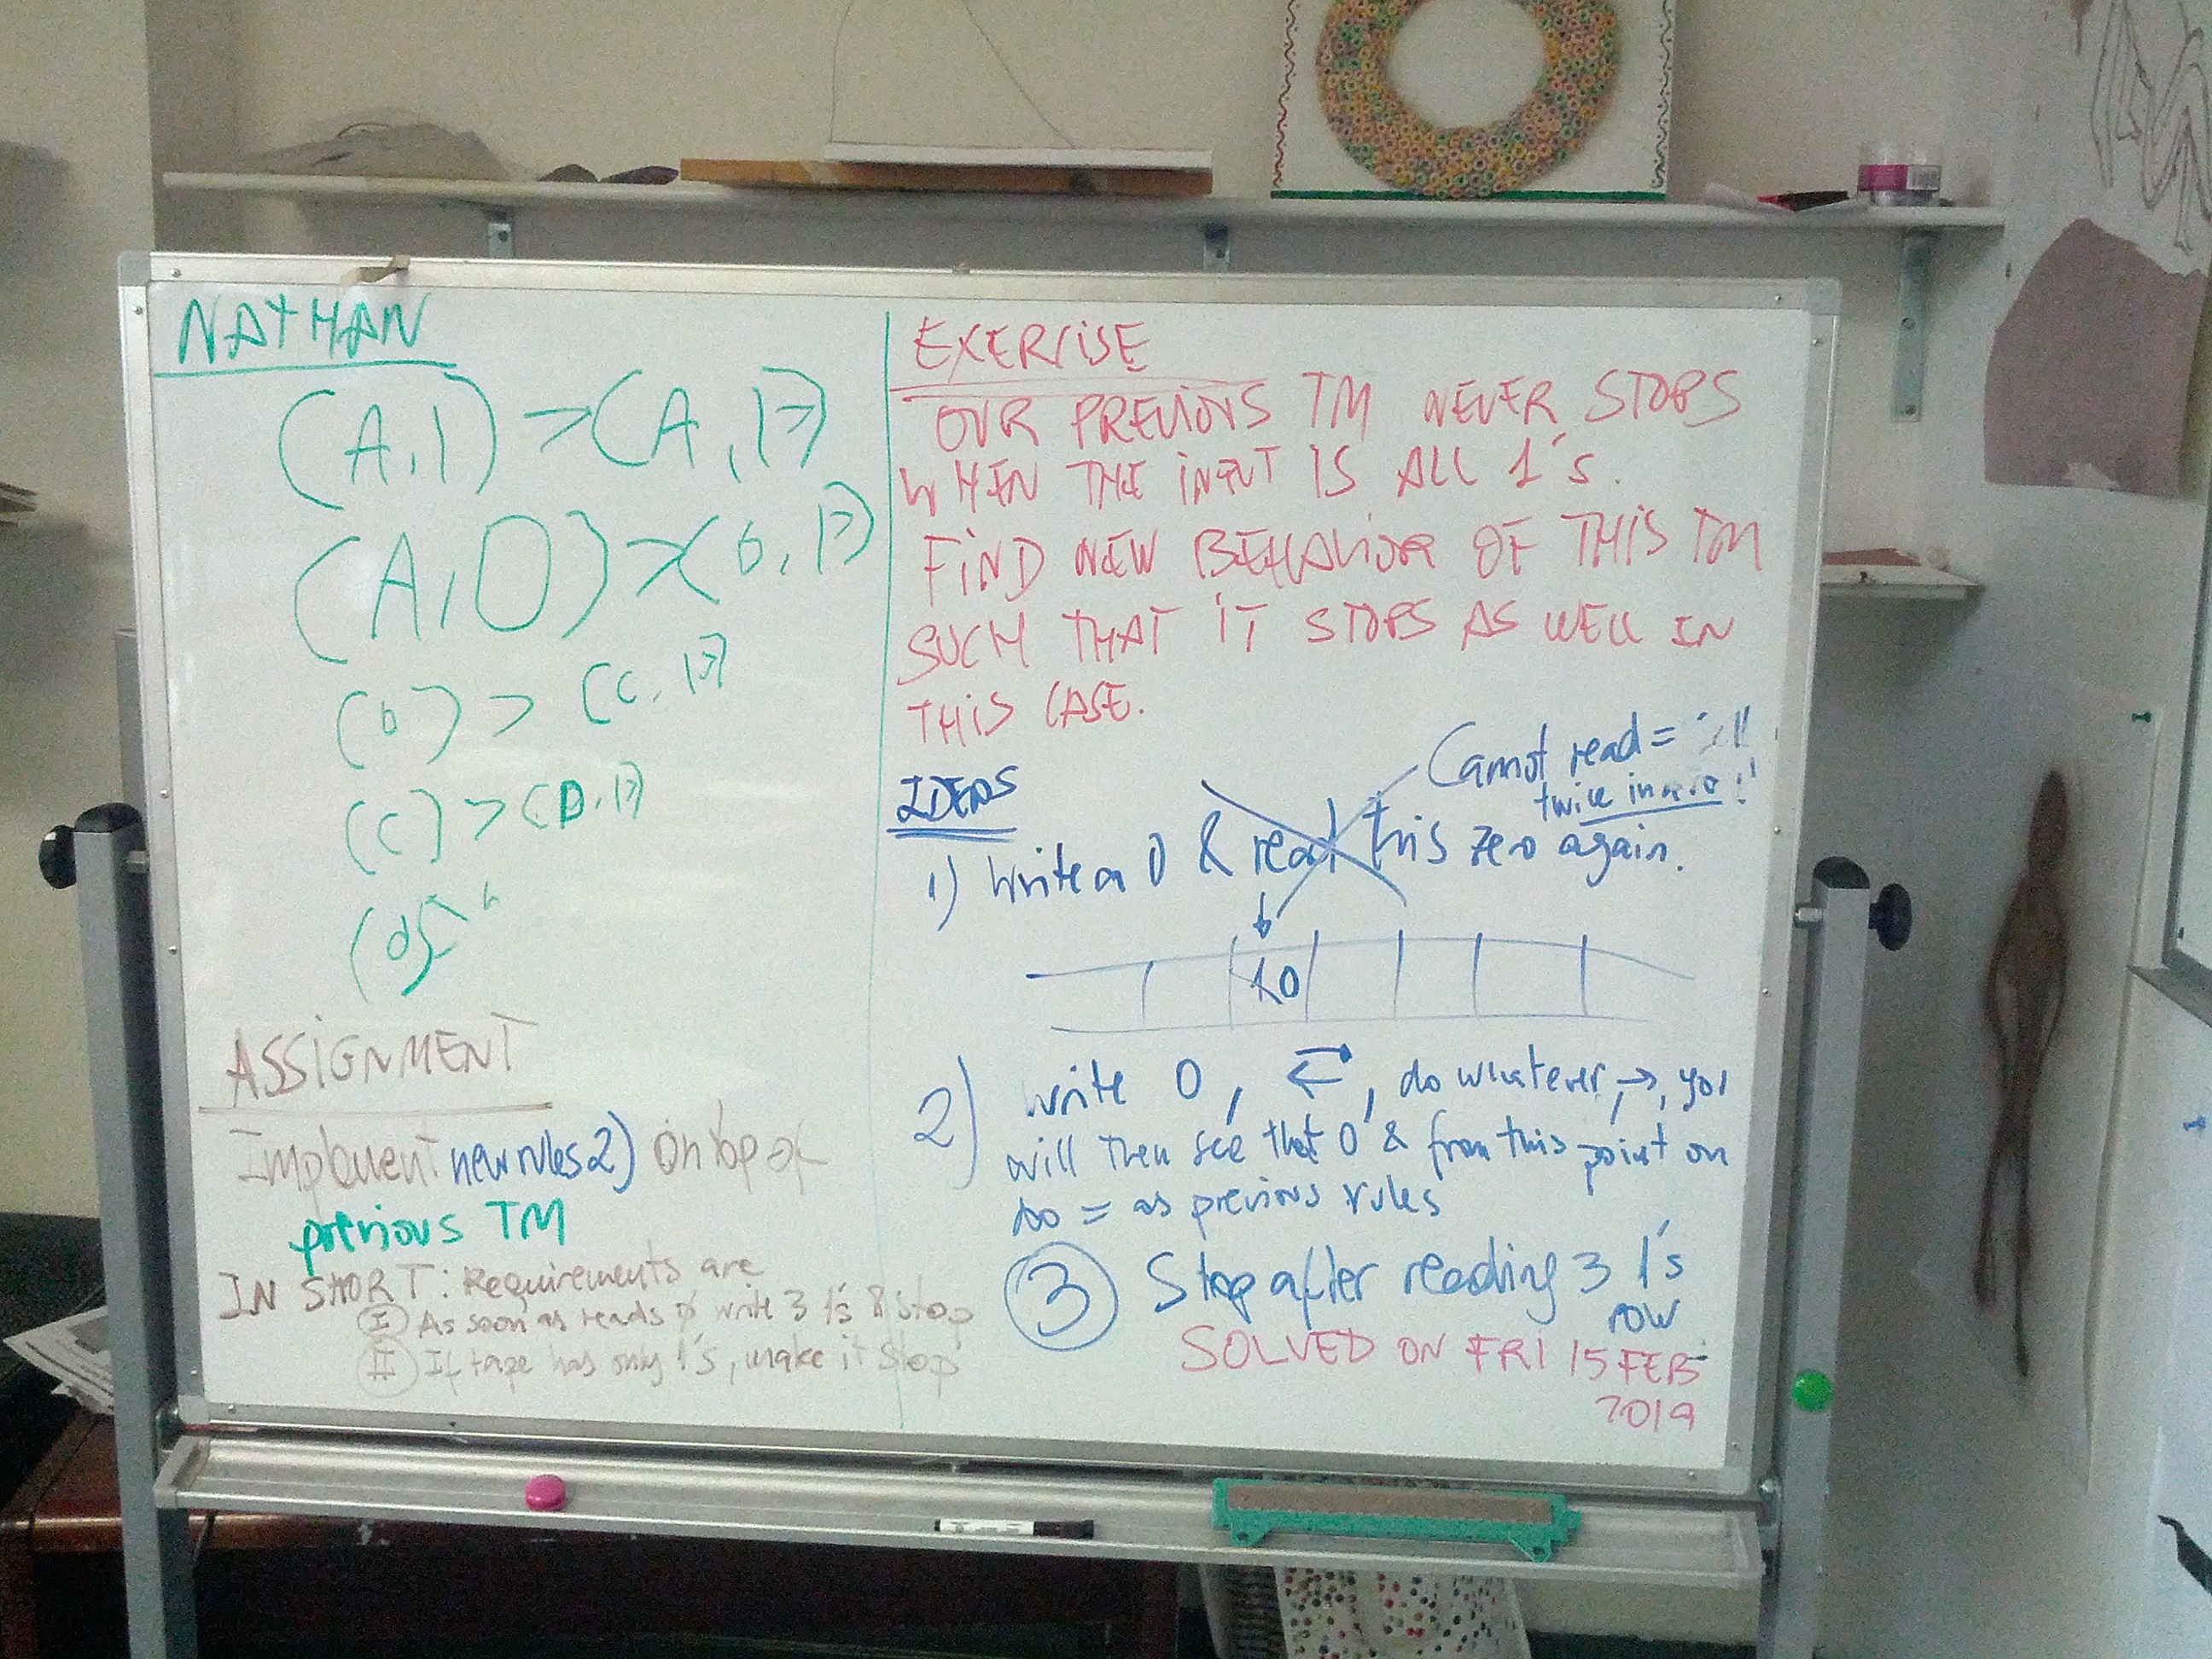 NATHAN
(A,1) → (A,1→)
(A,0) → (b,1→)
(b) > (c,1→)
(c) > (D,1→)
(d)
ASSIGNMENT
Implement new rules 2) on top of
previous TM
IN SHORT: Requirements are
I As soon as reads 0 write 3 1's & stop
II If tape has only 1's, make it stop
EXERCISE
OUR PREVIOUS TM NEVER STOPS
WHEN THE INPUT IS ALL 1's.
FIND NEW BEHAVIOR OF THIS TM
SUCH THAT IT STOPS AS WELL IN
THIS CASE.
Cannot read =
twice in a row!!
IDEAS
1) Write a 0 & read this zero again.
10
2) write 0, ⇄, do whatever, →, you
will then see that 0 & from this point on
do = as previous rules
3 Stop after reading 3 1's
row
SOLVED ON FRI 15 FEB
2019